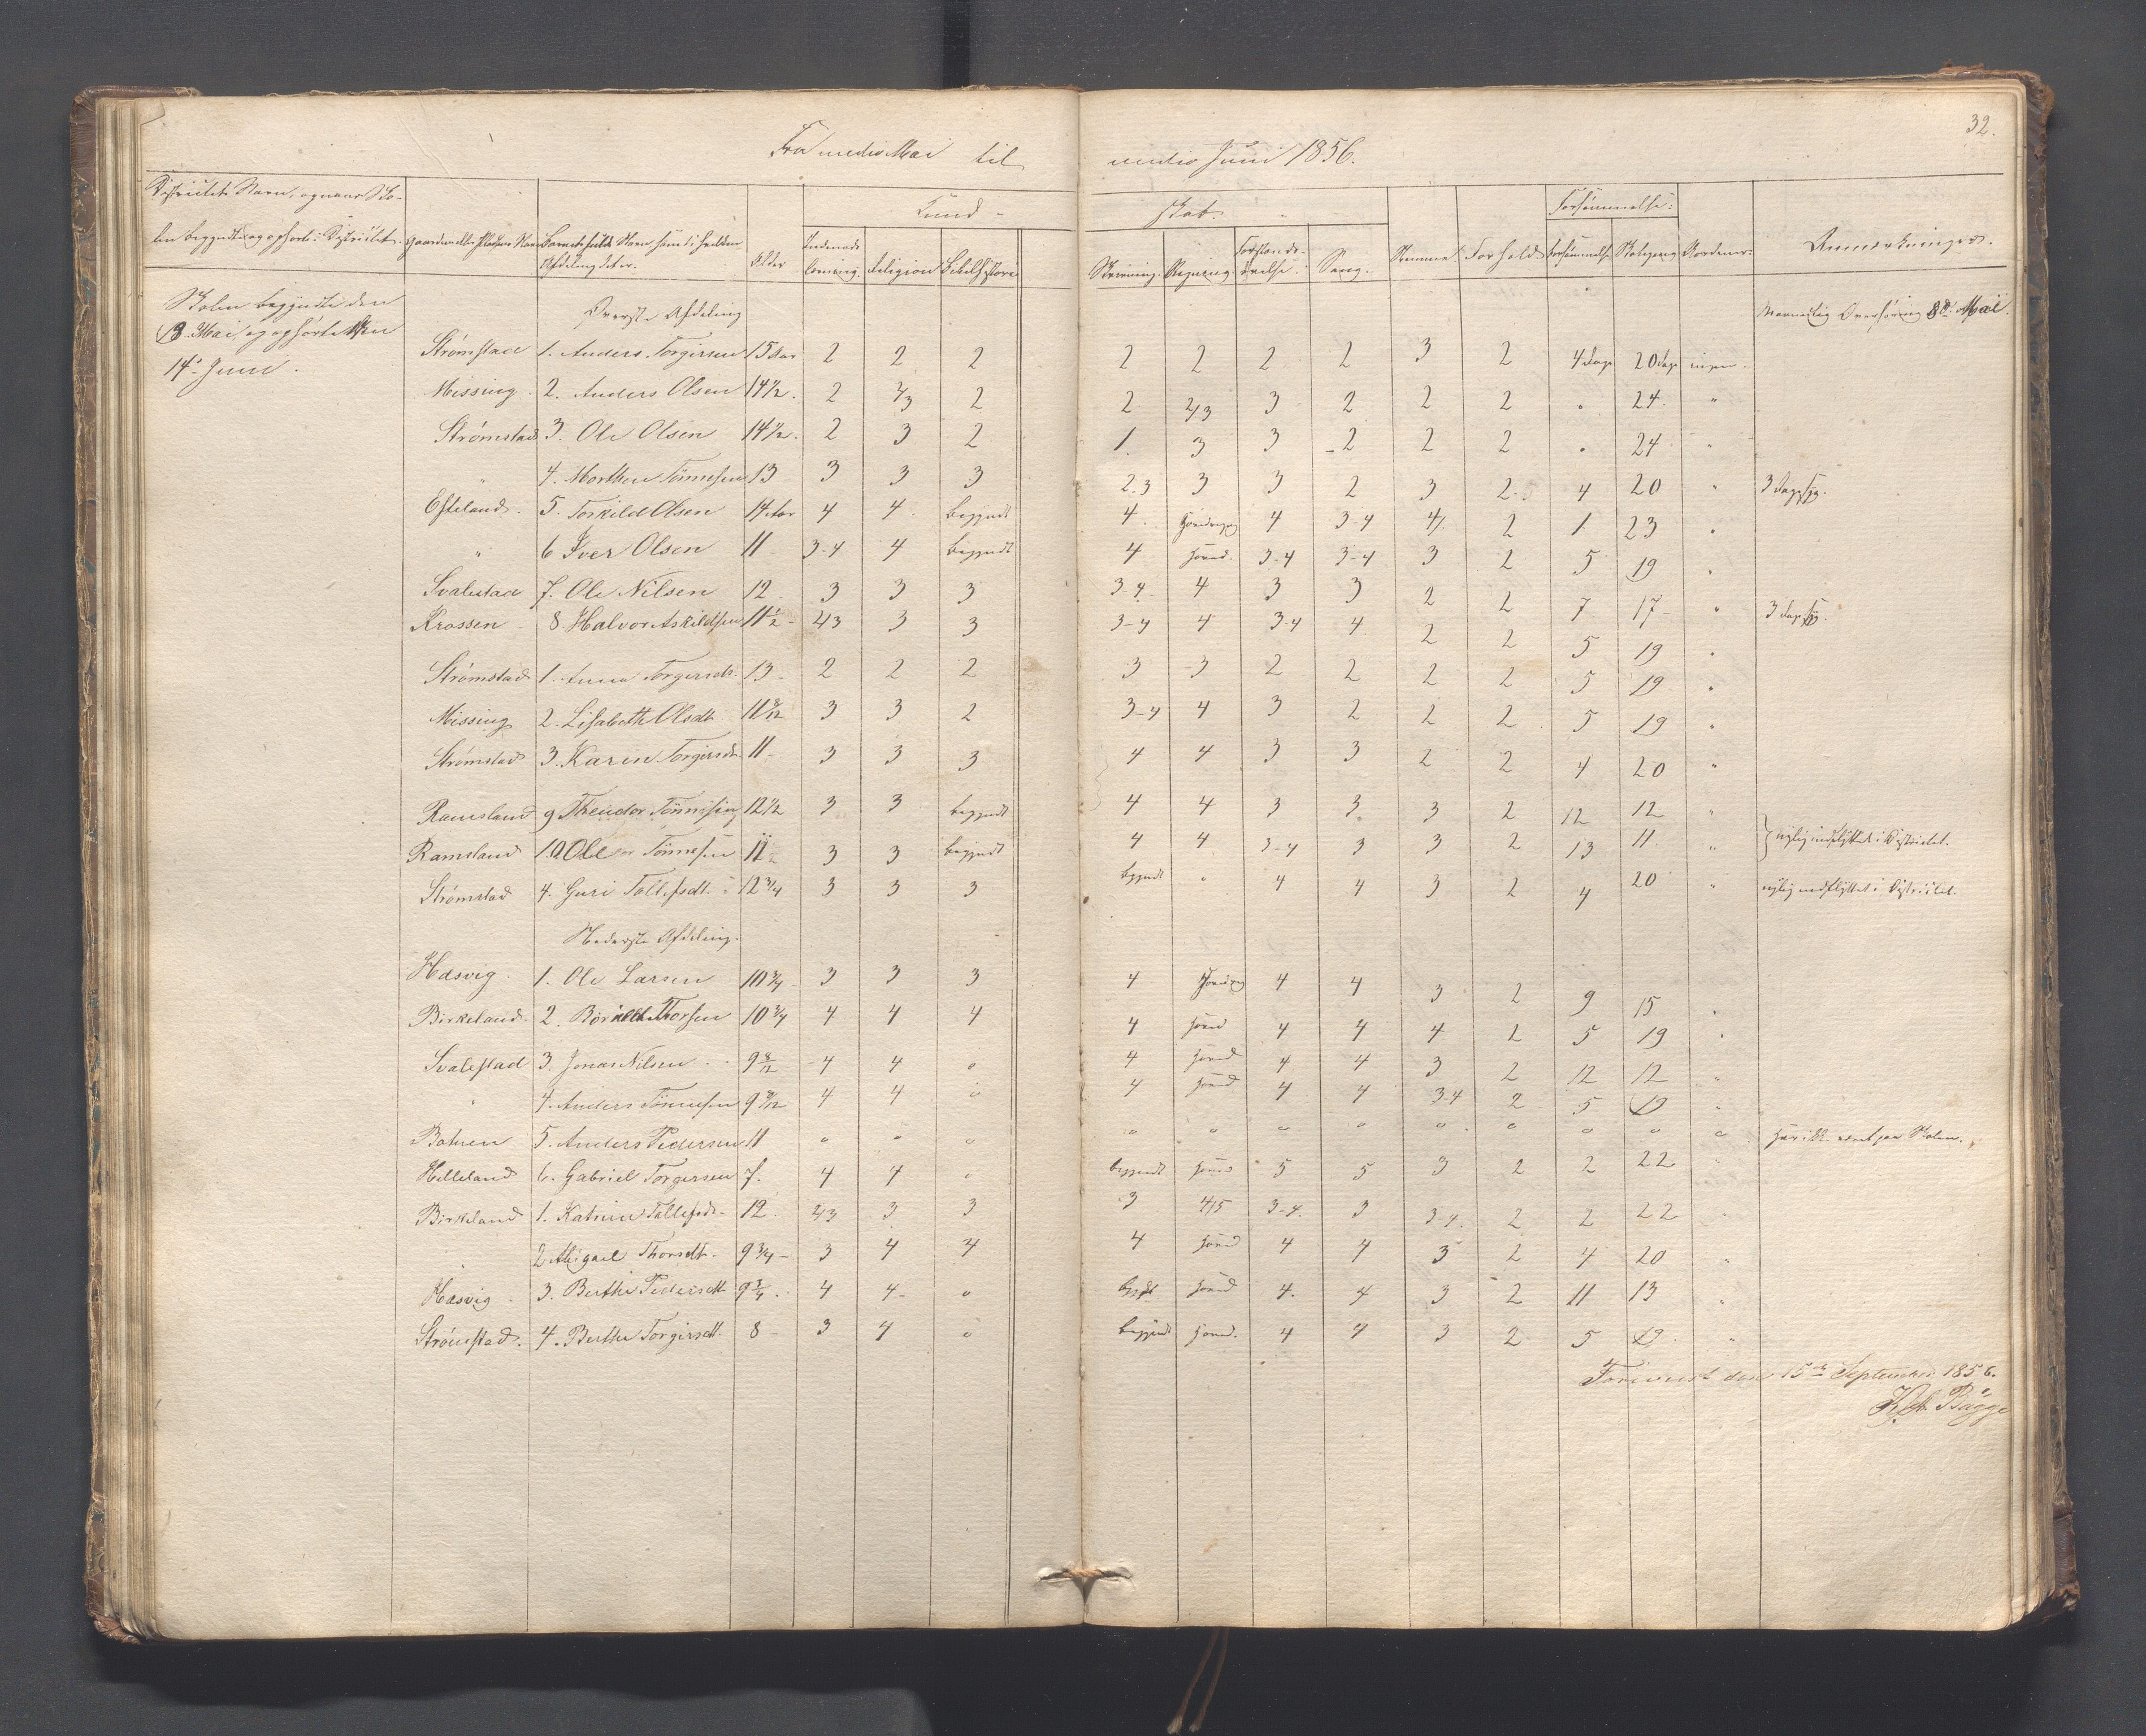 32.
Fra medio Mai til medio Juni 1856.
Districtets Navn, og naar Sko-
len begyndte og ophørte i Districtet.
Gaardens eller Pladsens Navn
Barnets fulde Navn samt i hvilken
Afdeling det er.
Alder
Kund-
skab.
Indenads
Læsning.
Religion
Bibelhistorie
Skrivning.
Regning.
Forstands-
øvelse.
Sang.
Nemme.
Forhold
Forsømmelse:
Forsømmelse
Skolegang
Uordener:
Anmærkninger.
Skolen begyndte den
13 Mai og ophørte den
14de Juni.
Øverste Afdeling
8de Mai.
Strømstad 1. Anders Torgirsen 15 Aar 2 2 2 2 2 2 2 3 2 4 Dage 20 Dage ingen.
Missing 2. Anders Olsen 14 1/2. 2 2/3 2 2 2/3 3 2 2 2 " 24 "
Strømstad 3. Ole Olsen 14 1/2. 2 3 2 1. 3 3 2 2 2 " 24 "
" 4. Morthen Tønnesen 13 3 3 3 2.3 3 3 2 3 2 4 20 " 3 Dage syg.
Efteland. 5. Torkild Olsen 14 Aar 4 4 begyndt 4. 4 3-4 4 2 1 23 "
" 6 Iver Olsen 11 3-4 4 begyndt 4 3-4 3-4 3 2 5 19 "
Svalestad 7. Ole Nilsen 12 3 3 3 3-4 4 3 3 2 2 7 17 " 3 Dage syg.
Krossen 8 Halvor Askildsen 11 1/2 2/3 3 3 3-4 4 3-4 4 2 2 5 19 "
Strømstad 1. Anna Torgersdt. 13 2 2 2 3 3 2 2 2 2 5 19 "
Missing 2. Lisabeth Olsdt. 11 8/12 3 3 2 3-4 4 3 2 2 2 5 19 "
Strømstad 3. Karin Torgirsdt. 11 3 3 3 4 4 3 3 2 2 4 20 "
Ramsland 9 Theodor Tønnesen 12 1/2 3 3 begyndt 4 4 3 3 3 2 12 12 "
Ramsland 10 Ole Tønnesen 11 3 3 begyndt 4 4 3-4 3 3 2 13 11 " nylig indflyttet i Districtet.
Strømstad 4. Guri Tollefsdt. 12 3/4 3 3 3 begyndt " 4 4 3 2 4 20 " nylig indflyttet i Districtet.
Nederste Afdeling.
Hæsvig 1. Ole Larsen 10 3/4 3 3 3 4 4 4 3 2 9 15 "
Birkeland 2. Thorsen 10 3/4 4 4 4 4 4 4 4 2 5 19 "
Svalestad 3. Jonas Nilsen 9 8/12 4 4 o 4 4 4 3 2 12 12 "
" 4. Anders Tønnesen 9 9/12 4 4 o 4 4 4 3-4 2 5 19 "
Botnen 5. Anders Pedersen 11 o o o o o o o o o o o o har ikke været paa Skolen.
Helleland 6. Gabriel Torgersen 7. 4 4 o begyndt 5 5 3 2 2 22 "
Birkeland 1. Katrine Tollefsdt. 12 2/3 3 3 3 4/5 3-4. 3 3-4. 2 2 22 "
" 2 Abigael Thorsdt. 9 3/4 3 4 4 4 4 4 3 2 4 20 "
Hæsvig 3. Berthe Pedersdt. 9 3/4 4 4 o begyndt 4. 4 3 2 11 13 "
Strømstad. 4. Berthe Torgirsdt. 8 3 4 o begyndt 4 4 3 2 5 19 "
Foreviist den 15de September 1856.
Bugge